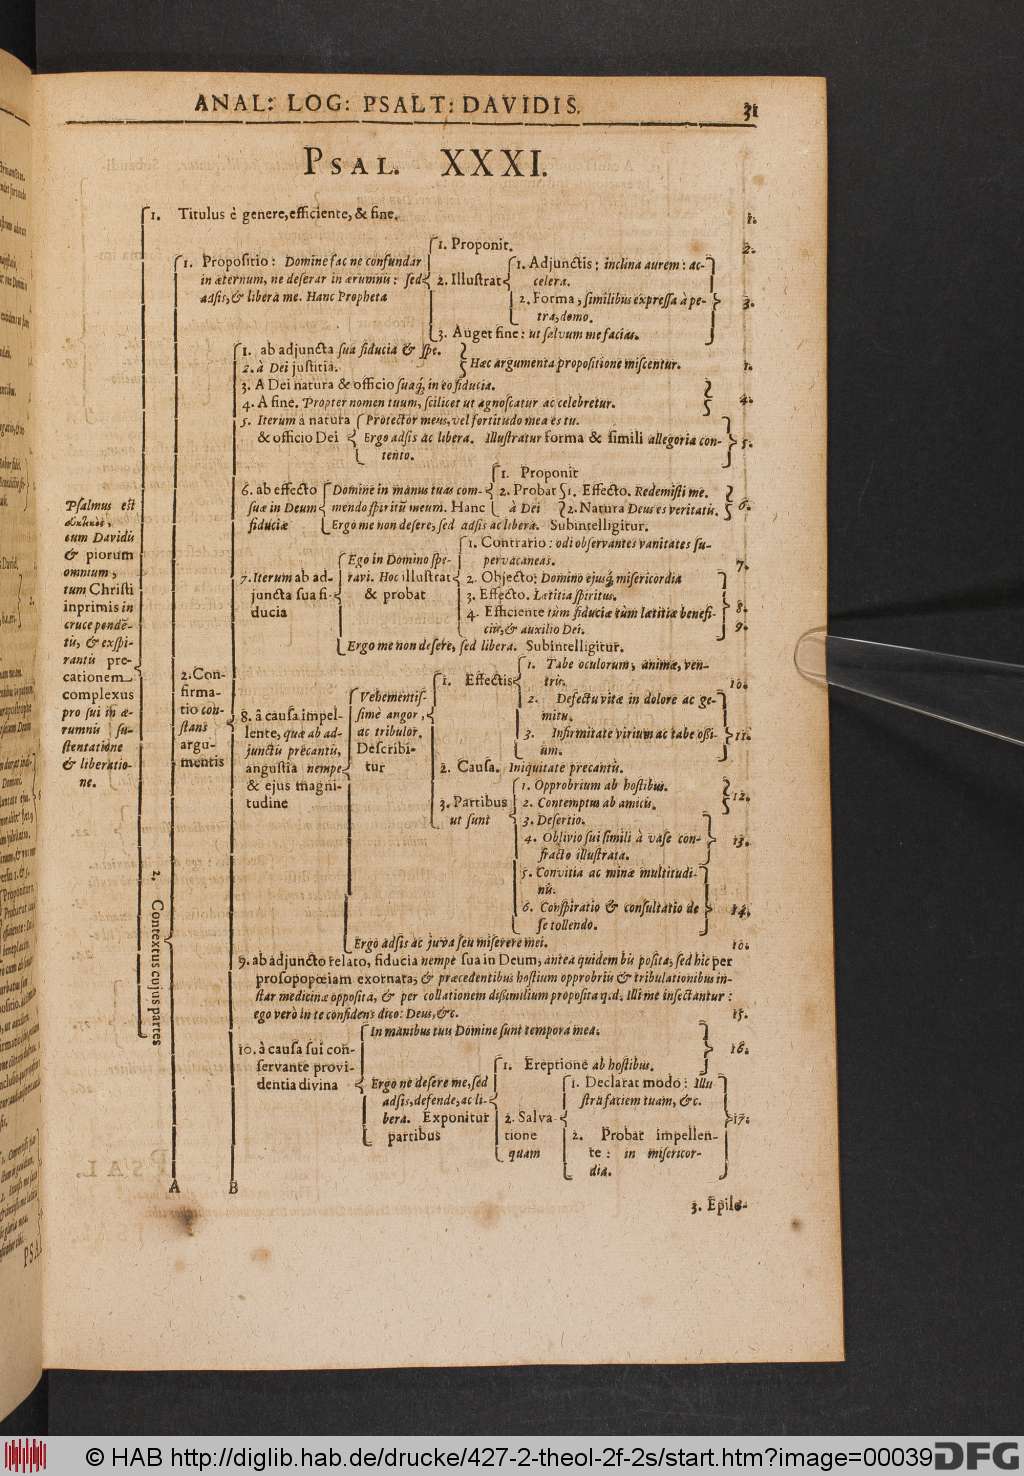 ANAL: LOG: PSALT: DAVIDIS. 31
PSAL. XXXI.
1. Titulus è genere, efficiente, & fine. 1.
Psalmus est
eum Davidis
& piorum
omnium,
tum Christi
inprimis in
cruce pendē-
tis, & exspi-
rantis pre-
cationem
complexus
pro sui in æ-
rumnis su-
stentatione
& liberatio-
ne.
2. Contextus cujus partes
1. Propositio: Domine fac ne confundar
in æternum, ne deserar in ærumnis: sed
adsis, & libera me. Hanc Propheta
1. Proponit. 2.
2. Illustrat
1. Adjunctis: inclina aurem: ac-
celera.
2. Forma, similibus expressa à pe-
tra, domo. 3.
3. Auget fine: ut salvum me facias.
2. Con-
firma-
tio con-
stans
argu-
mentis
1. ab adjuncta sua fiducia & spe.
2. à Dei justitia.
Hæc argumenta propositione miscentur. 1.
3. A Dei natura & officio suaq́, in eo fiducia.
4. A fine. Propter nomen tuum, scilicet ut agnoscatur ac celebretur. 4.
5. Iterum à natura
& officio Dei
Protector meus, vel fortitudo mea es tu.
Ergo adsis ac libera. Illustratur forma & simili allegoria con-
tento. 5.
6. ab effecto
suæ in Deum
fiduciæ
Domine in manus tuas com-
mendo spiritū meum. Hanc
1. Proponit
2. Probat
à Dei
1. Effecto. Redemisti me.
2. Natura Deus es veritatis. 6.
Ergo me non desere, sed adsis ac libera. Subintelligitur.
7. Iterum ab ad-
juncta sua fi-
ducia
Ego in Domino spe-
ravi. Hoc illustrat
& probat
1. Contrario: odi observantes vanitates su-
pervacaneas. 7.
2. Objecto: Domino ejusq́, misericordia
3. Effecto. Lætitia spiritus. 8.
4. Efficiente tùm fiduciæ tùm lætitiæ benefi-
ciis, & auxilio Dei. 9.
Ergo me non desere, sed libera. Subintelligitur.
8. â causa impel-
lente, quæ ab ad-
junctis precantis,
angustia nempe
& ejus magni-
tudine
Vehementis-
sime angor,
ac tribulor.
Describi-
tur
1. Effectis
1. Tabe oculorum, animæ, ven-
tris. 10.
2. Defectu vitæ in dolore ac ge-
mitu.
3. Infirmitate virium ac tabe ossi-
um. 11.
2. Causa. Iniquitate precantis.
3. Partibus
ut sunt
1. Opprobrium ab hostibus.
2. Contemptus ab amicis. 12.
3. Desertio.
4. Oblivio sui simili à vase con-
fracto illustrata. 13.
5. Convitia ac minæ multitudi-
nis.
6. Conspiratio & consultatio de
se tollendo. 14.
Ergo adsis ac juva seu miserere mei. 10.
9. ab adjuncto relato, fiducia nempe sua in Deum, antea quidem bis posita, sed hic per
prosopopœiam exornata, & præcedentibus hostium opprobriis & tribulationibus in-
star medicinæ opposita, & per collationem dissimilium proposita q.d. Illi me insectantur:
ego verò in te confidens dico: Deus, &c. 15.
10. à causa sui con-
servante provi-
dentia divina
In manibus tuis Domine sunt tempora mea. 16.
Ergo ne desere me, sed
adsis, defende, ac li-
bera. Exponitur
partibus
1. Ereptione ab hostibus.
2. Salva-
tione
quam
1. Declarat modo: Illu-
stra faciem tuam, &c.
2. Probat impellen-
te: in misericor-
dia. 17.
A B
3. Epilo-
© HAB http://diglib.hab.de/drucke/427-2-theol-2f-2s/start.htm?image=00039
DFG